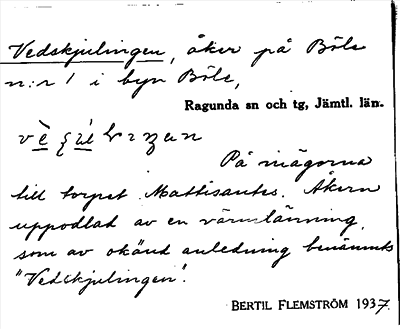 Vedskjulingen, åker på Böle
n:r 1 i byn Böle,
Ragunda sn och tg, Jämtl. län.
På mägorna
till torpet Mattisantes. Åkern
uppodlad av en värmlänning,
som av okänd anledning benämnts
"Vedskjulingen".
BERTIL FLEMSTRÖM 1937.